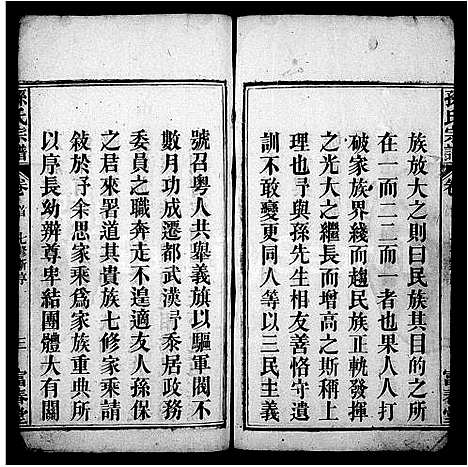 族放大之則曰民族其目的之所
在一而二二而一者也果人人打
破家族界綫而趨民族正軌發揮
之光大之繼長而增高之斯稱上
流余即與孫先生相友善恪守遺
訓不敢變更同人等以三民主義
號召粵人共舉義旗以驅軍閥不
數月功成遷都武漢予忝居政務
委員之職奔走不遑適友人孫保
之君來署道其貴族七修家乘請
敍於予余思家乘爲家族重典所
以序長幼辨尊卑結團體大有關
孫氏宗譜
卷首
三
富春堂